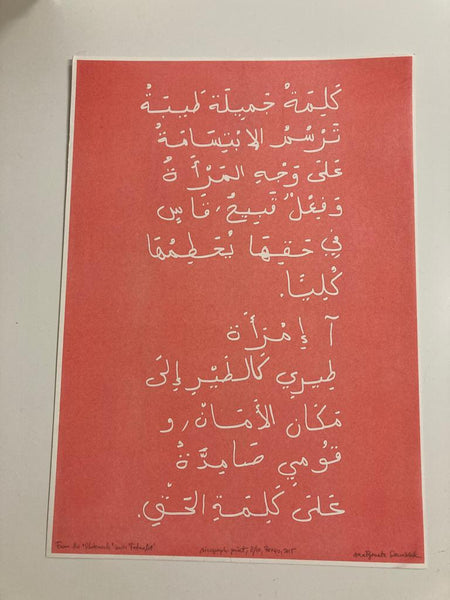 كَلِمَةْ جَمِيلَة طَيِبَةُ
تَرْسُمُ الإِبْتِسَامَةُ
عَلَى وَجْهِ المَرْأَةُ
وَفِعْلُ قَبِيحُ، قَاسٍ
فِي حَقِهَا يُحَطِمُهَا
كُلِيًا.
آ إِمْرَأَة
طِيرِي كَالطَيْرِ إِلَى
مَكَانِ الأَمَانْ، و
قُومِي صَامِدَةُ
عَلَى كَلِمَةِ الحَقِّ.
From the "
risograph print, 2015